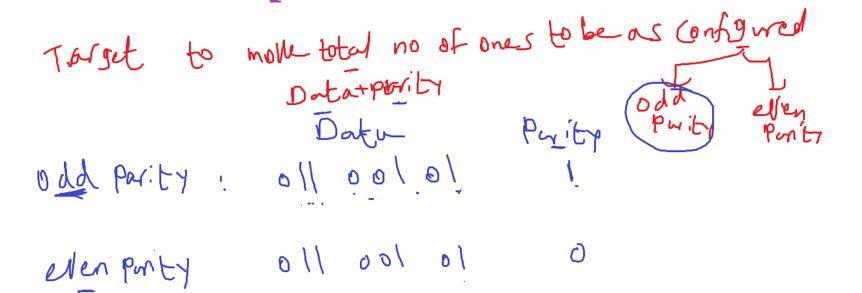 Target to make total no of ones to be as configured
Data+parity
odd parity
even parity
Data Parity
odd parity : 011 001 01 1
even parity 011 001 01 0